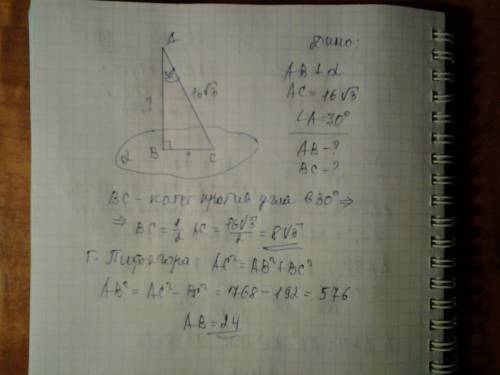 A
16√3
?
α
B
?
C
Дано:
AB ⊥ α
AC = 16√3
∠A=30°
AB - ?
BC - ?
BC - катет против угла в 30° ⇒
⇒ BC = 1/2 AC = 16√3/2 = 8√3
т. Пифагора: AC² = AB² + BC²
AB² = AC² - BC² = 768 - 192 = 576
AB = 24